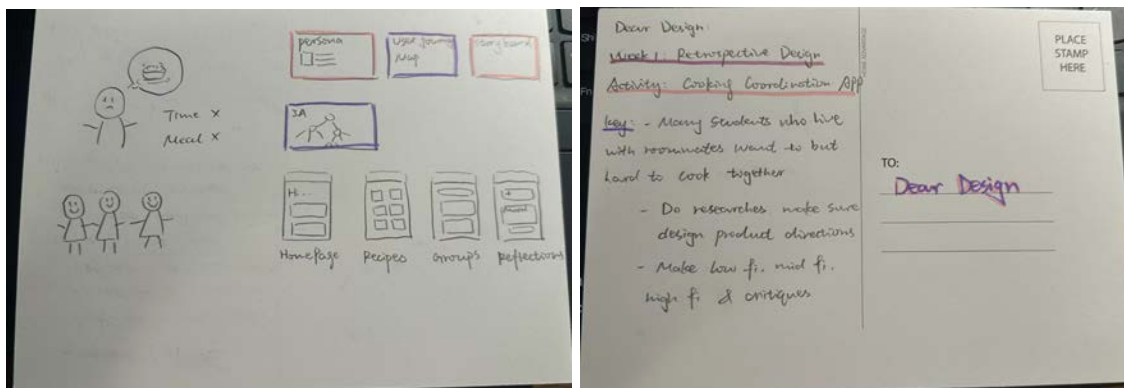 persona
User Journey
Map
storyboard
Time x
Meal x
IA
Hi...
Homepage
Recipes
Groups
Reflections
Dear Design:
Week 1: Retrospective Design
Activity: Cooking Coordination App
key: - Many students who live
with roommates want to but
hard to cook together
- Do researches make sure
design product directions
- Make low fi. mid fi.
high fi & critiques
PLACE
STAMP
HERE
TO:
Dear Design